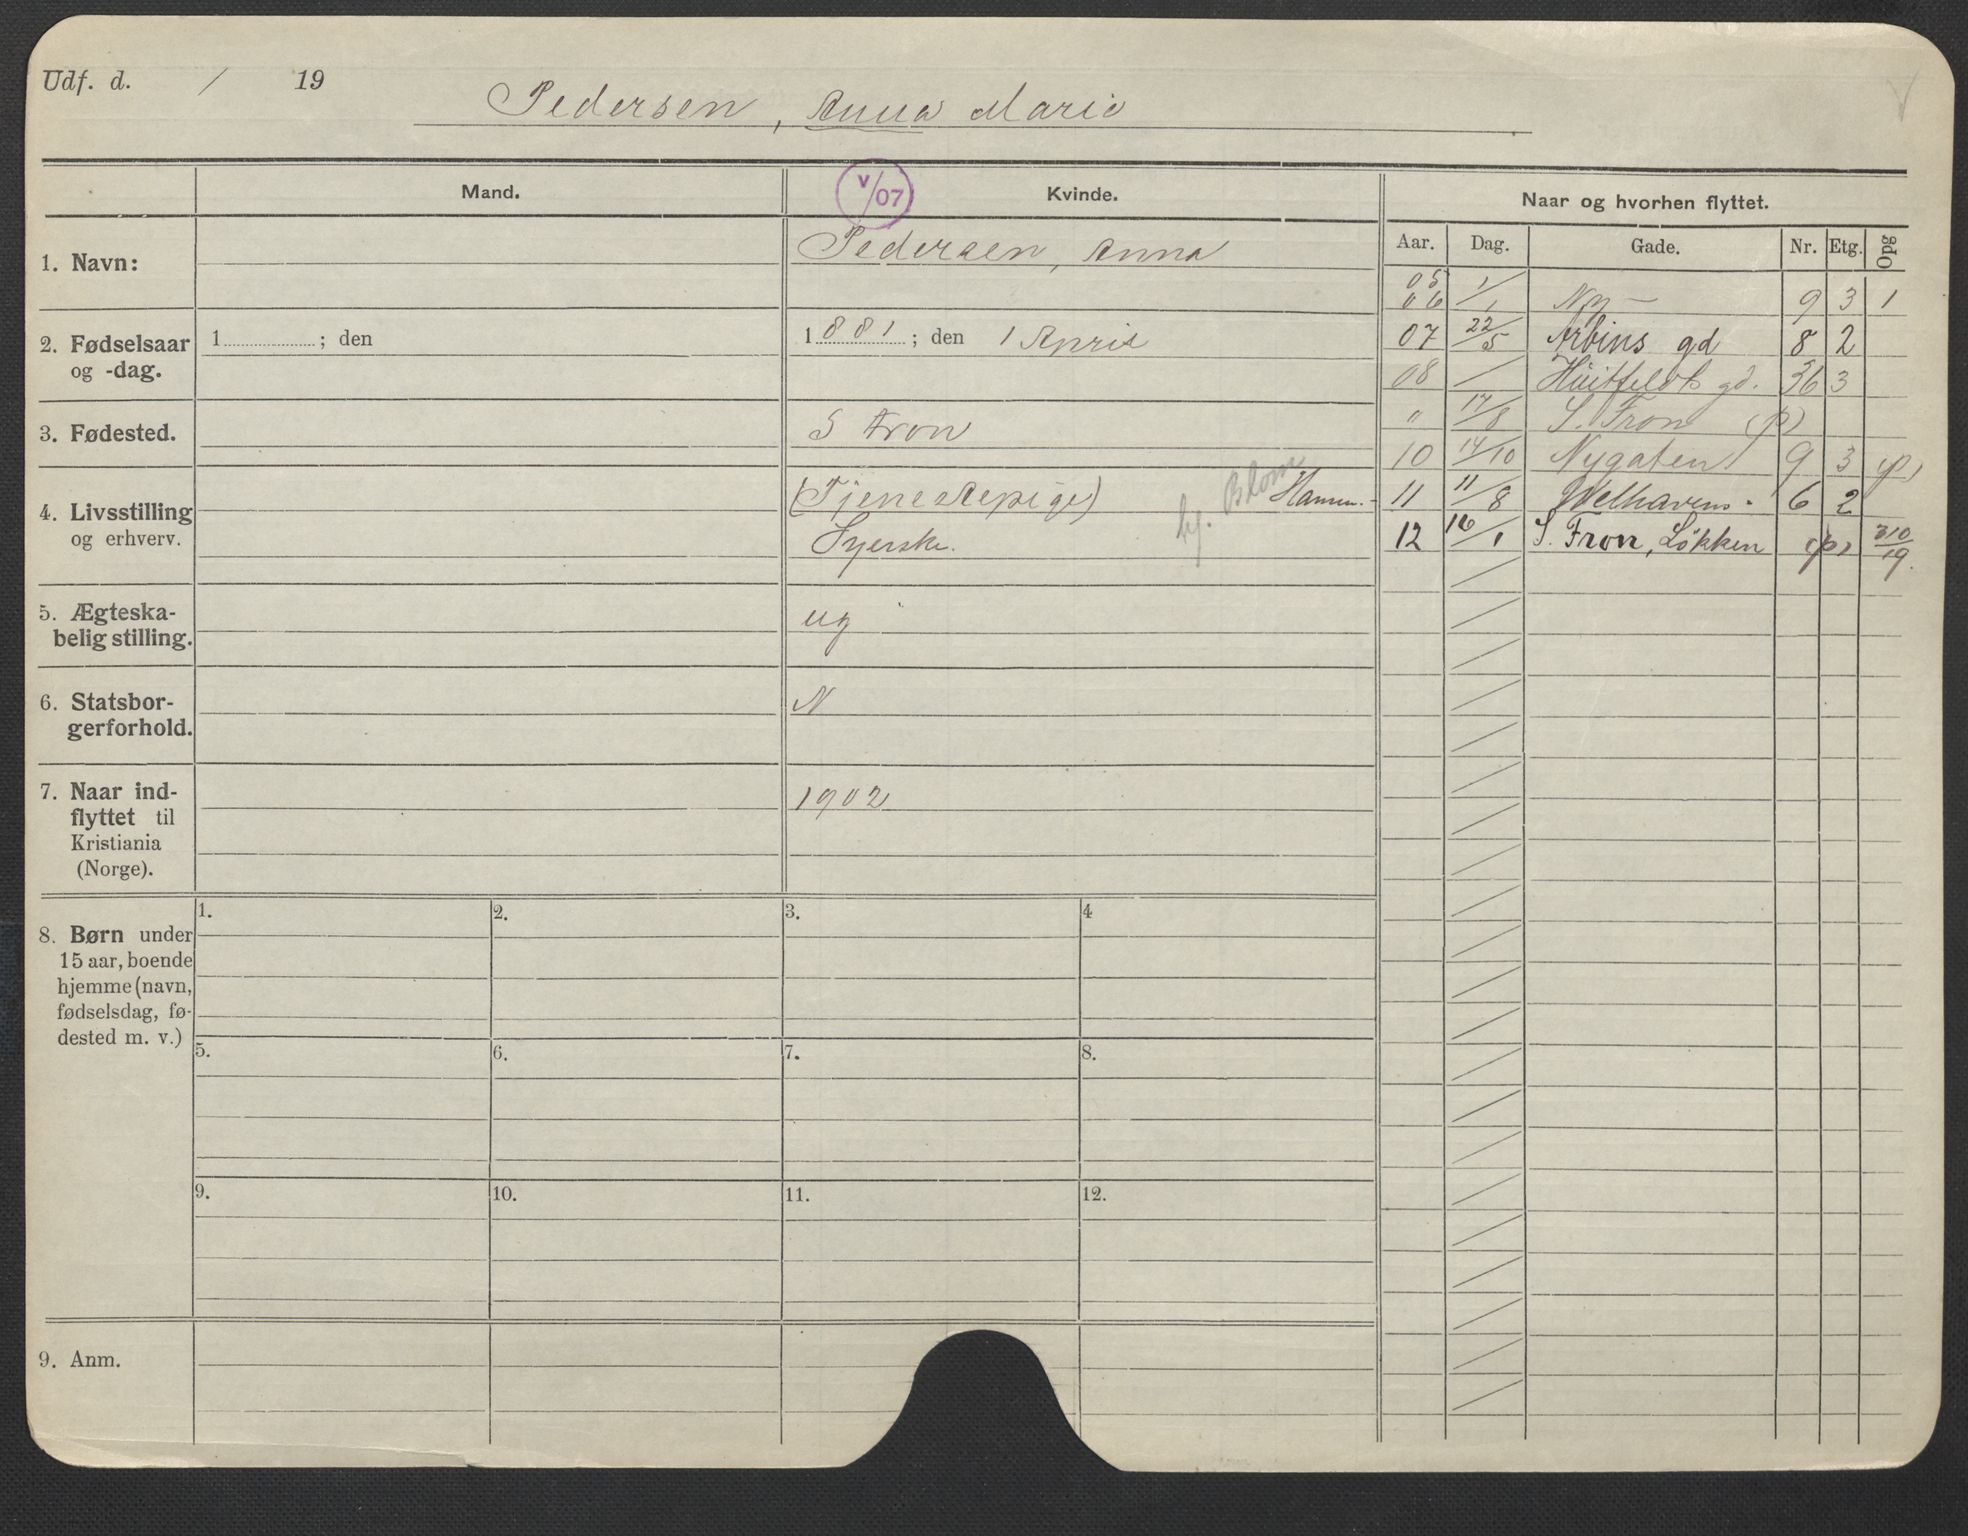 Udf. d. / 19
Pedersen, Anna Marie
Mand.
V/07
Kvinde.
Naar og hvorhen flyttet.
Aar. Dag. Gade. Nr. Etg. Opg
1. Navn:
Pedersen, Anna
2. Fødselsaar
og -dag.
1 ; den
1881 ; den 1 April
3. Fødested.
S Fron
4. Livsstilling
og erhverv.
(Tjenestepige)
hj. Blom
Hansen.
Syerske.
5. Ægteska-
belig stilling.
ug
6. Statsbor-
gerforhold.
N
7. Naar ind-
flyttet til
Kristiania
(Norge).
1902
05
06 1/1 Ny— 9 3 1
07 22/5 Arbins gd 8 2
08 / Huitfeldts gd. 36 3
" 17/8 S. Fron (p)
10 14/10 Nygaten 9 3 (p)
11 11/8 Welhavens - 6 2
12 16/1 S. Fron, Løkken (p) 310/19.
8. Børn under
15 aar, boende
hjemme (navn,
fødselsdag, fø-
dested m. v.)
1. 2. 3. 4
5. 6. 7. 8.
9. 10. 11. 12.
9. Anm.